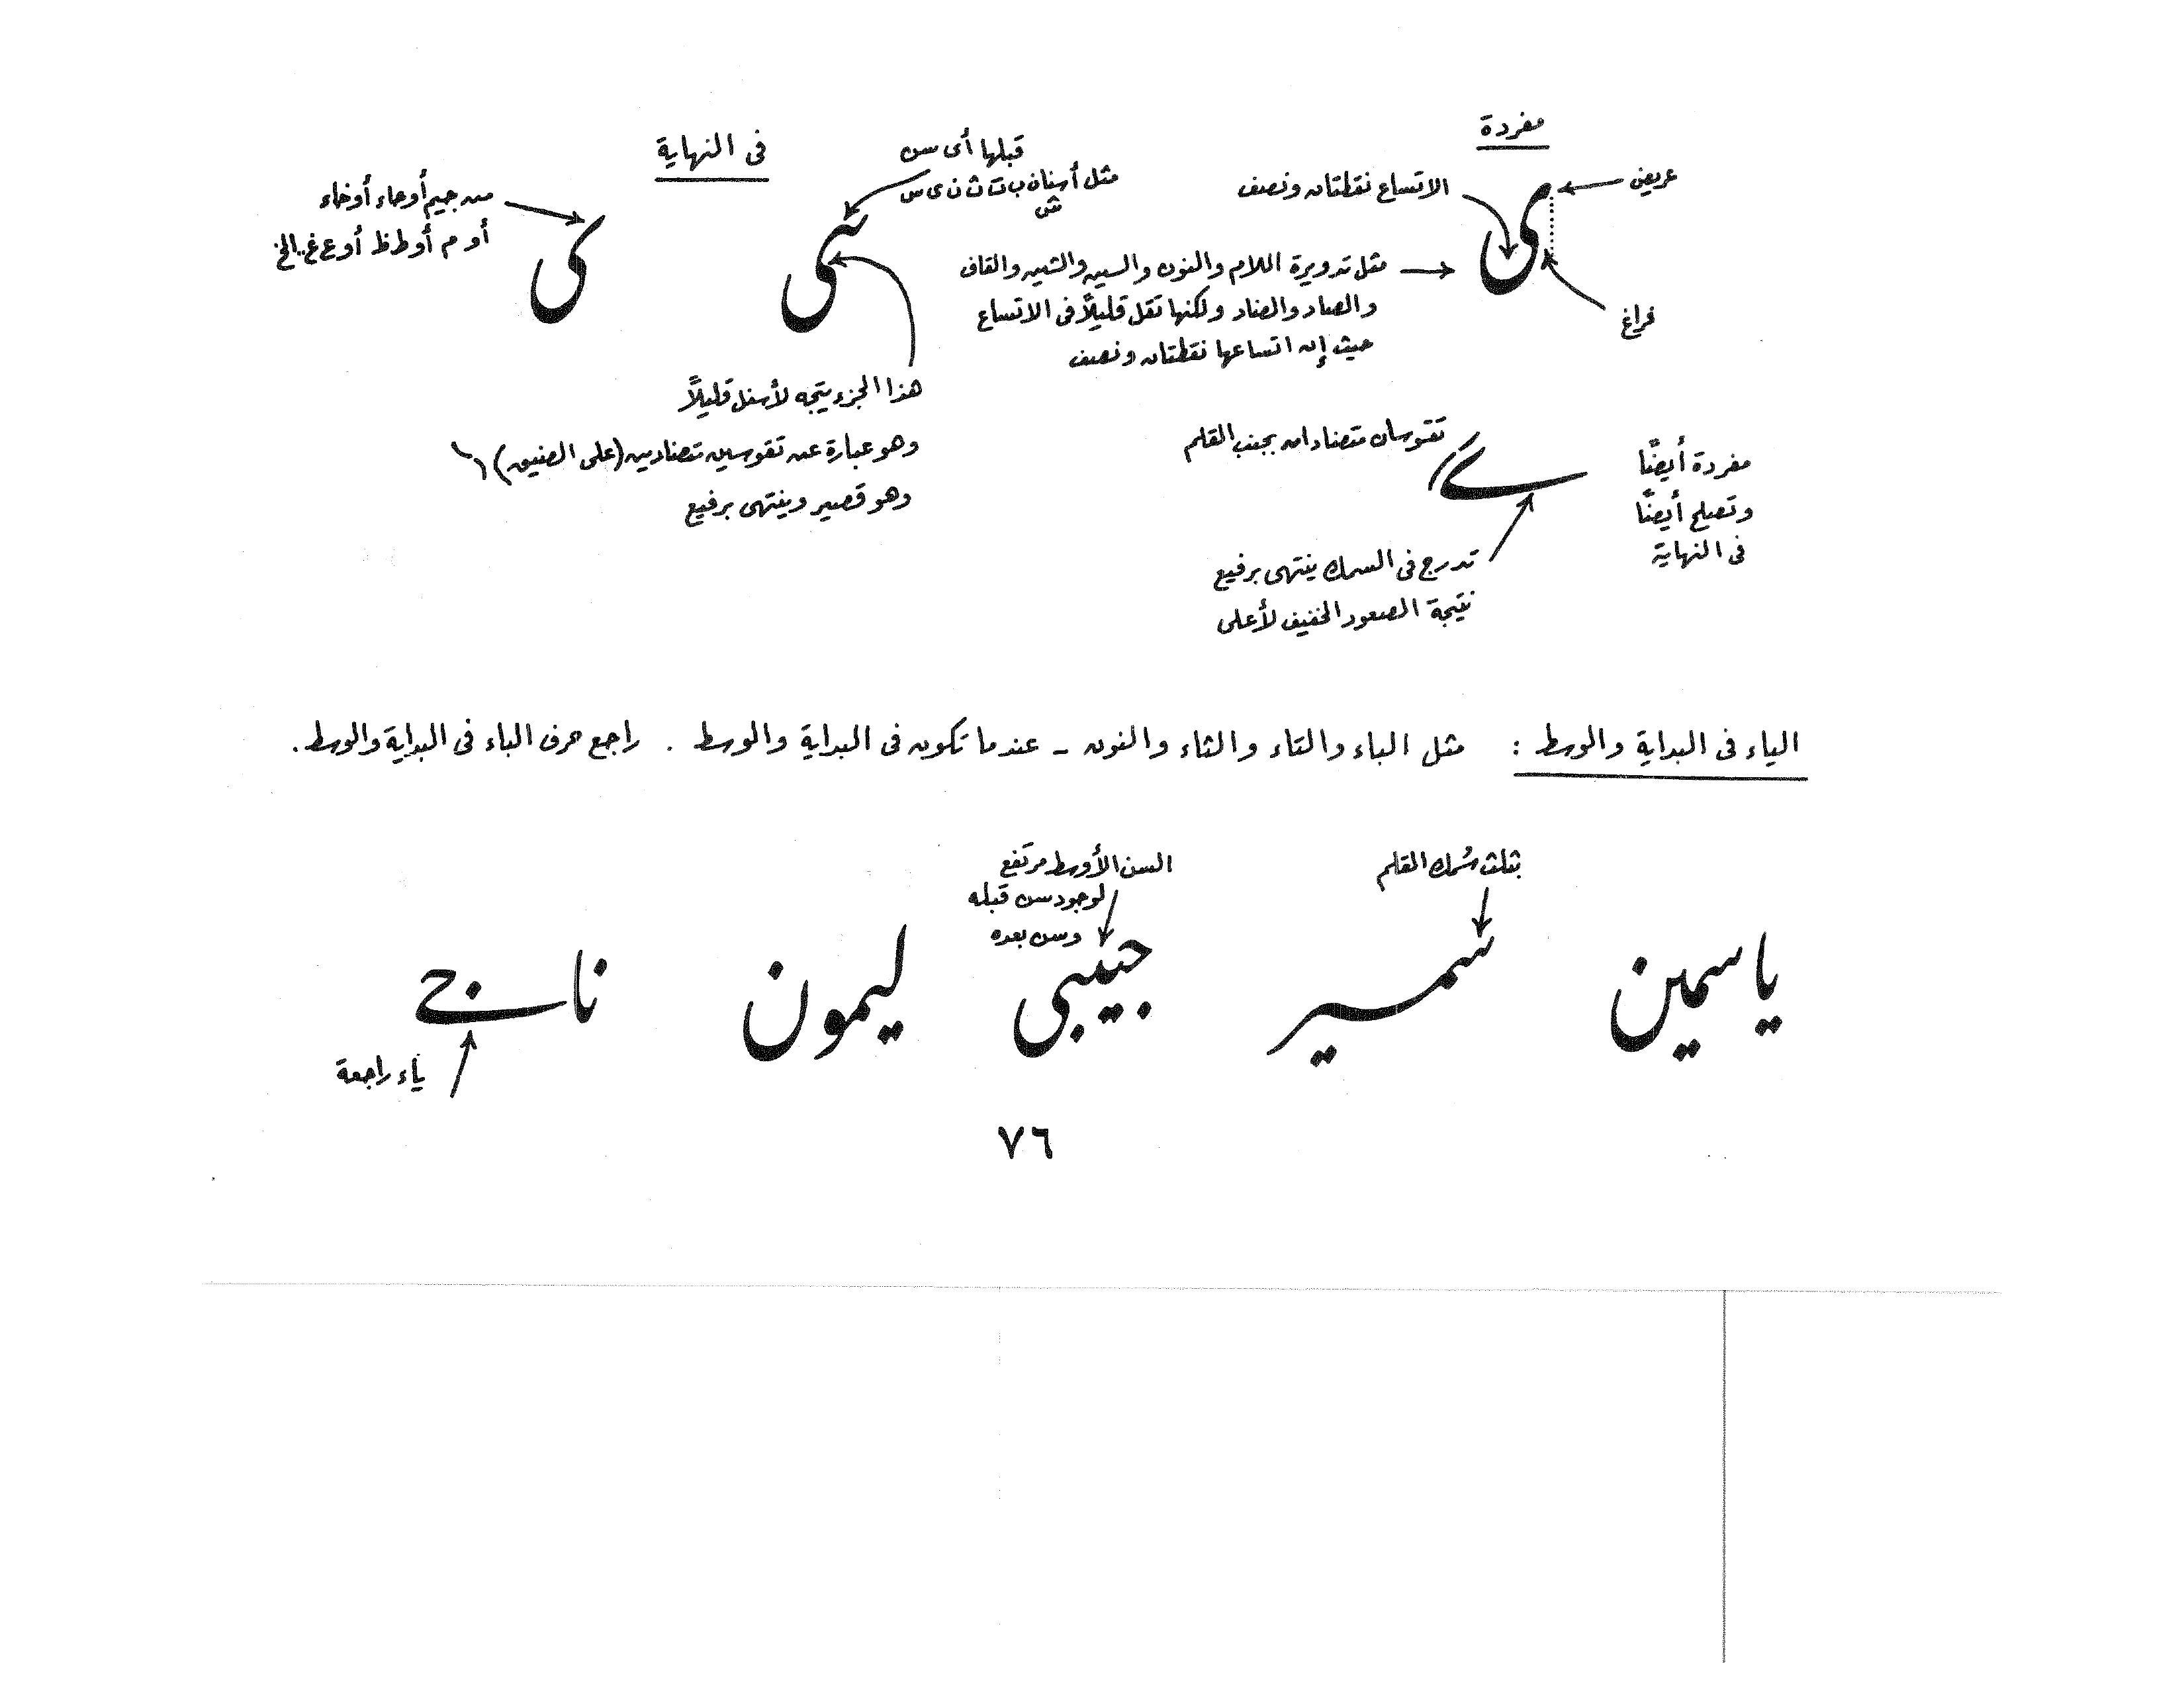 مفردة
عريض
الاتساع نقطتان ونصف
فراغ
مثل تدويرة اللام والنون والسين والشين والقاف
والصاد والضاد ولكنها تقل قليلاً فى الاتساع
حيث إن اتساعها نقطتان ونصف
ى
فى النهاية
قبلها أى سن
مثل أسنان ب ت ث ن ى س
ش
من جيم أو حاء أو خاء
أو م أو ط ظ أو ع غ .. الخ
هذا الجزء يتجه لأسفل قليلاً
وهو عبارة عن تقوسين متضادين (على الضيق)
وهو قصير وينتهى برفيع
مفردة أيضًا
وتصلح أيضًا
فى النهاية
تقوسان متضادان بجنب القلم
ے
تدرج فى السمك ينتهى برفيع
نتيجة الصعود الخفيف لأعلى
الياء فى البداية والوسط : مثل الباء والتاء والثاء والنون - عندما تكون فى البداية والوسط . راجع حرف الباء فى البداية والوسط .
بثلث سُمك القلم
السن الأوسط مرتفع
لوجود سن قبله
وسن بعده
ياسمين سمير حبيبي ليمون ناجى
ياء راجعة
٧٦